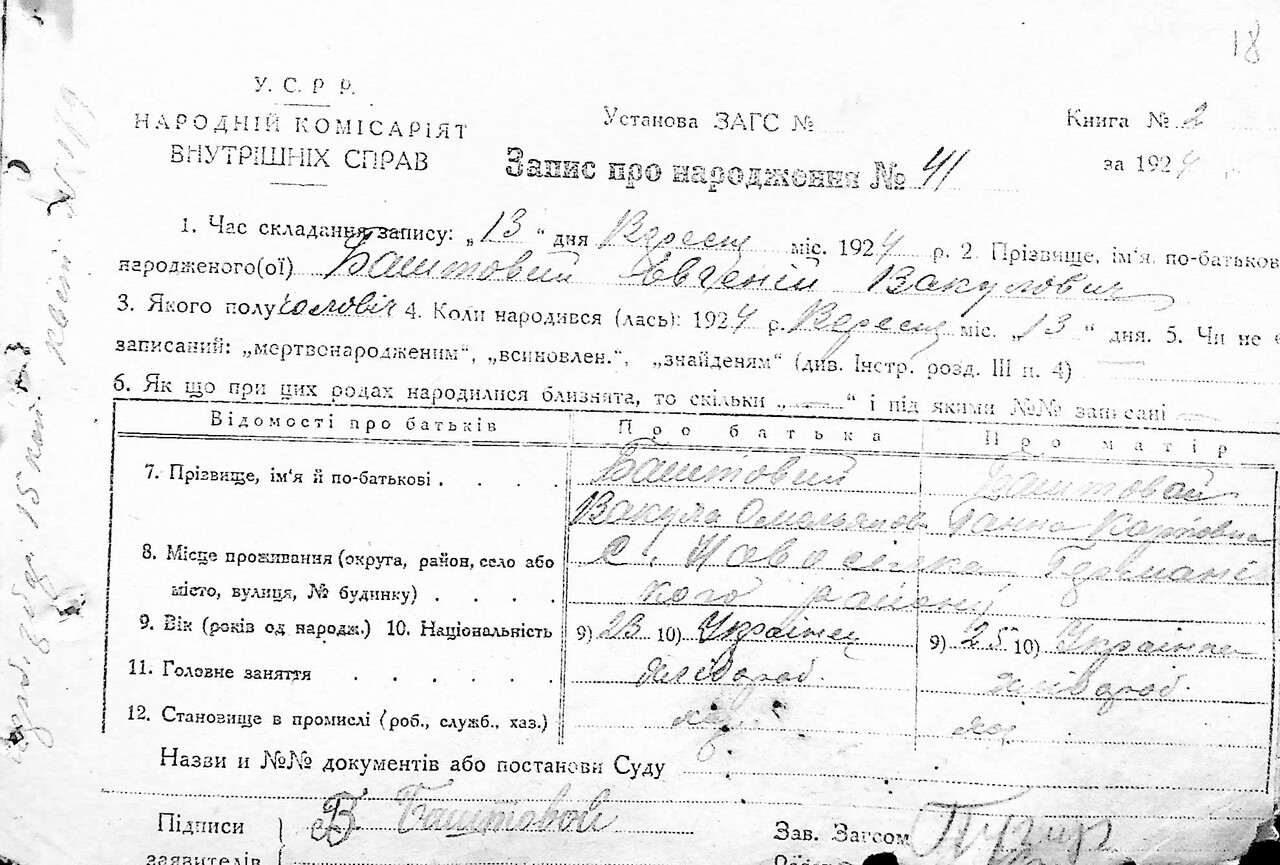 18
У. С. Р Р.
НАРОДНІЙ КОМІСАРІЯТ
ВНУТРІШНІХ СПРАВ
Установа ЗАГС №
Книга № 2
Запис про народження № 41
за 1924
1. Час складання запису: „13" дня Вересня міс. 1924 р. 2. Прізвище, ім'я, по-батькові
народженого(ої) Баштовий Євгеній Вакулович
3. Якого полу чоловіч 4. Коли народився (лась): 1924 р. Вересня міс. „13" дня. 5. Чи не є
записаний: „мертвонародженим", „всиновлен.", „знайденям" (див. Інстр. розд. III п. 4)
6. Як що при цих родах народилися близнята, то скільки „—" і під якими №№ записані —
Відомості про батьків Про батька Про матір
7. Прізвище, ім'я й по-батькові . . . . Баштовий Баштовая
Вакула Омельянов Ганна Карповна
8. Місце проживання (округа, район, село або с. Новосілка, Германів
місто, вулиця, № будинку) . . . . кого району
9. Вік (років од народж.) 10. Національність 9) 23 10) Українец 9) 25 10) Українка
11. Головне заняття . . . . . . хлібороб. хлібороб.
12. Становище в промислі (роб., служб., хаз.)
Назви и №№ документів або постанови Суду
Підписи В Баштовой Зав. Загсом Пугир
заявителів